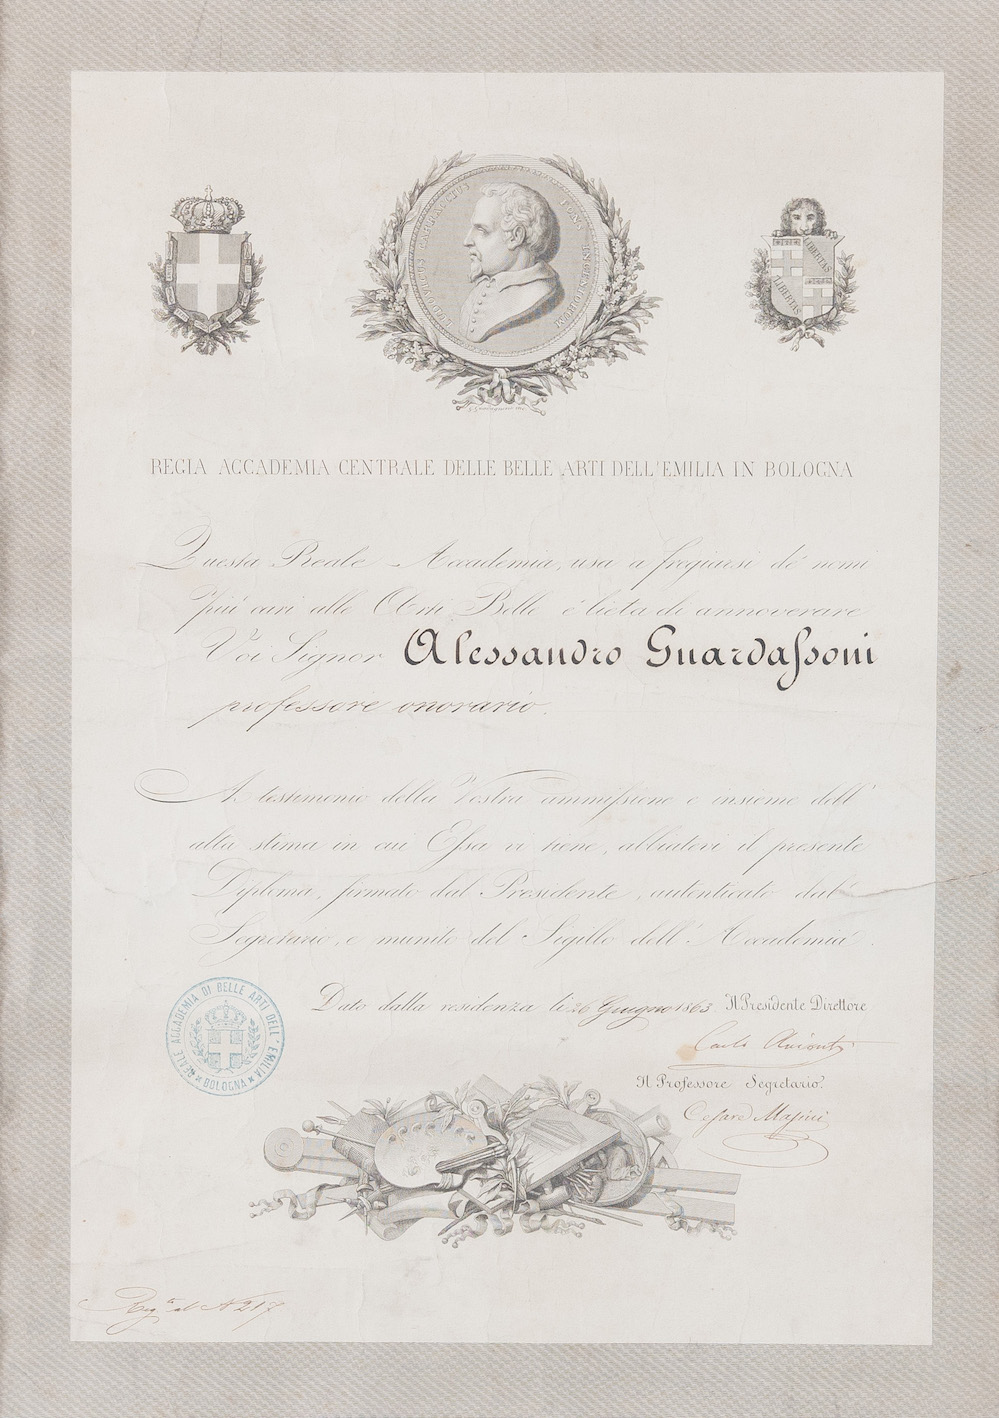 LUDOVICUS CARRACCIUS BONA INGENIORUM
LIBERTAS
LIBERTAS
REGIA ACCADEMIA CENTRALE DELLE BELLE ARTI DELL'EMILIA IN BOLOGNA
Questa Reale Accademia, usa a fregiarsi de' nomi
più cari alle Arti Belle è lieta di annoverare
Voi Signor Alessandro Guardassoni
professore onorario.
A testimonio della Vostra ammissione e insieme dell'
alta stima in cui Essa vi tiene, abbiatevi il presente
Diploma, firmato dal Presidente, autenticato dal
Segretario, e munito del Sigillo dell'Accademia.
Dato dalla residenza li 26 Giugno 1863 Il Presidente Direttore
Carlo
Il Professore Segretario
Cesare Masini
REALE ACCADEMIA DI BELLE ARTI DELL'EMILIA
BOLOGNA
Reg.to al N 217